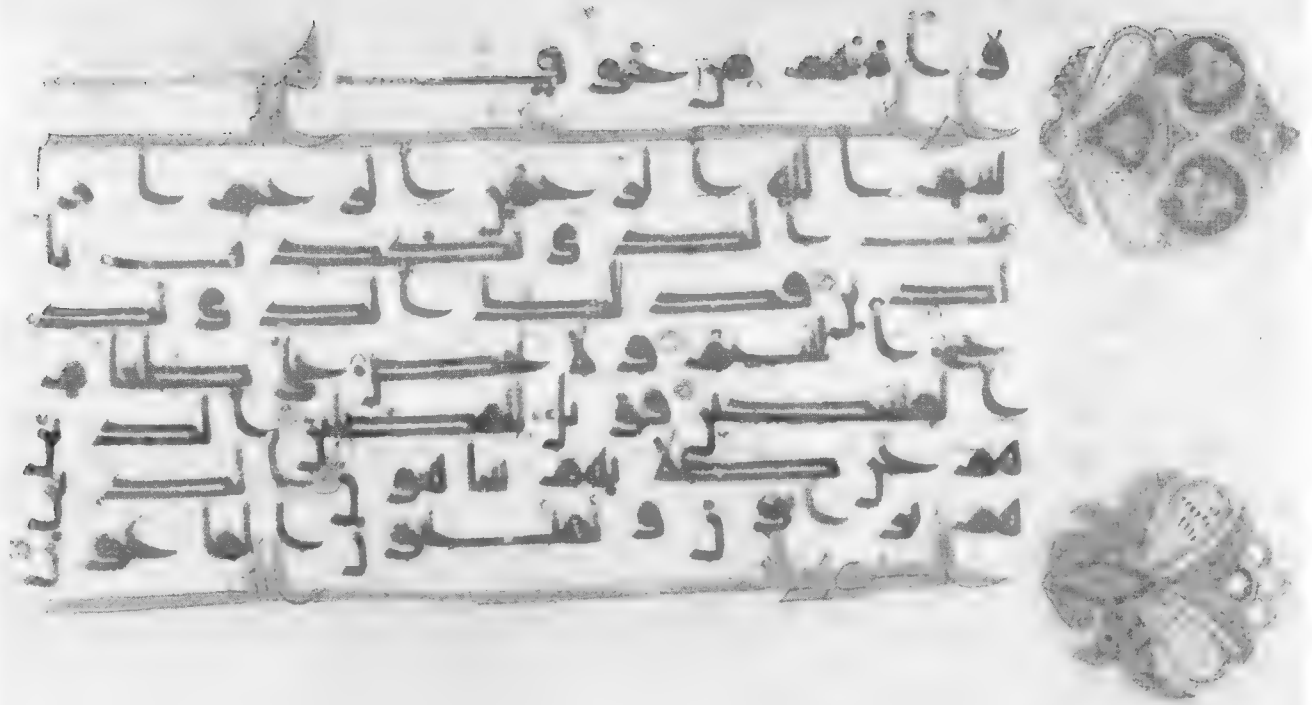 و امنهم من خوف
بسم الله الرحمن الرحيم ار
يت الذي يكذب با
لدين فذلك الذي يد
ع اليتيم ولا يحض على طعام
المسكين فويل للمصلين الذين
هم عن صلاتهم ساهون الذين
هم يراون ويمنعون الماعون